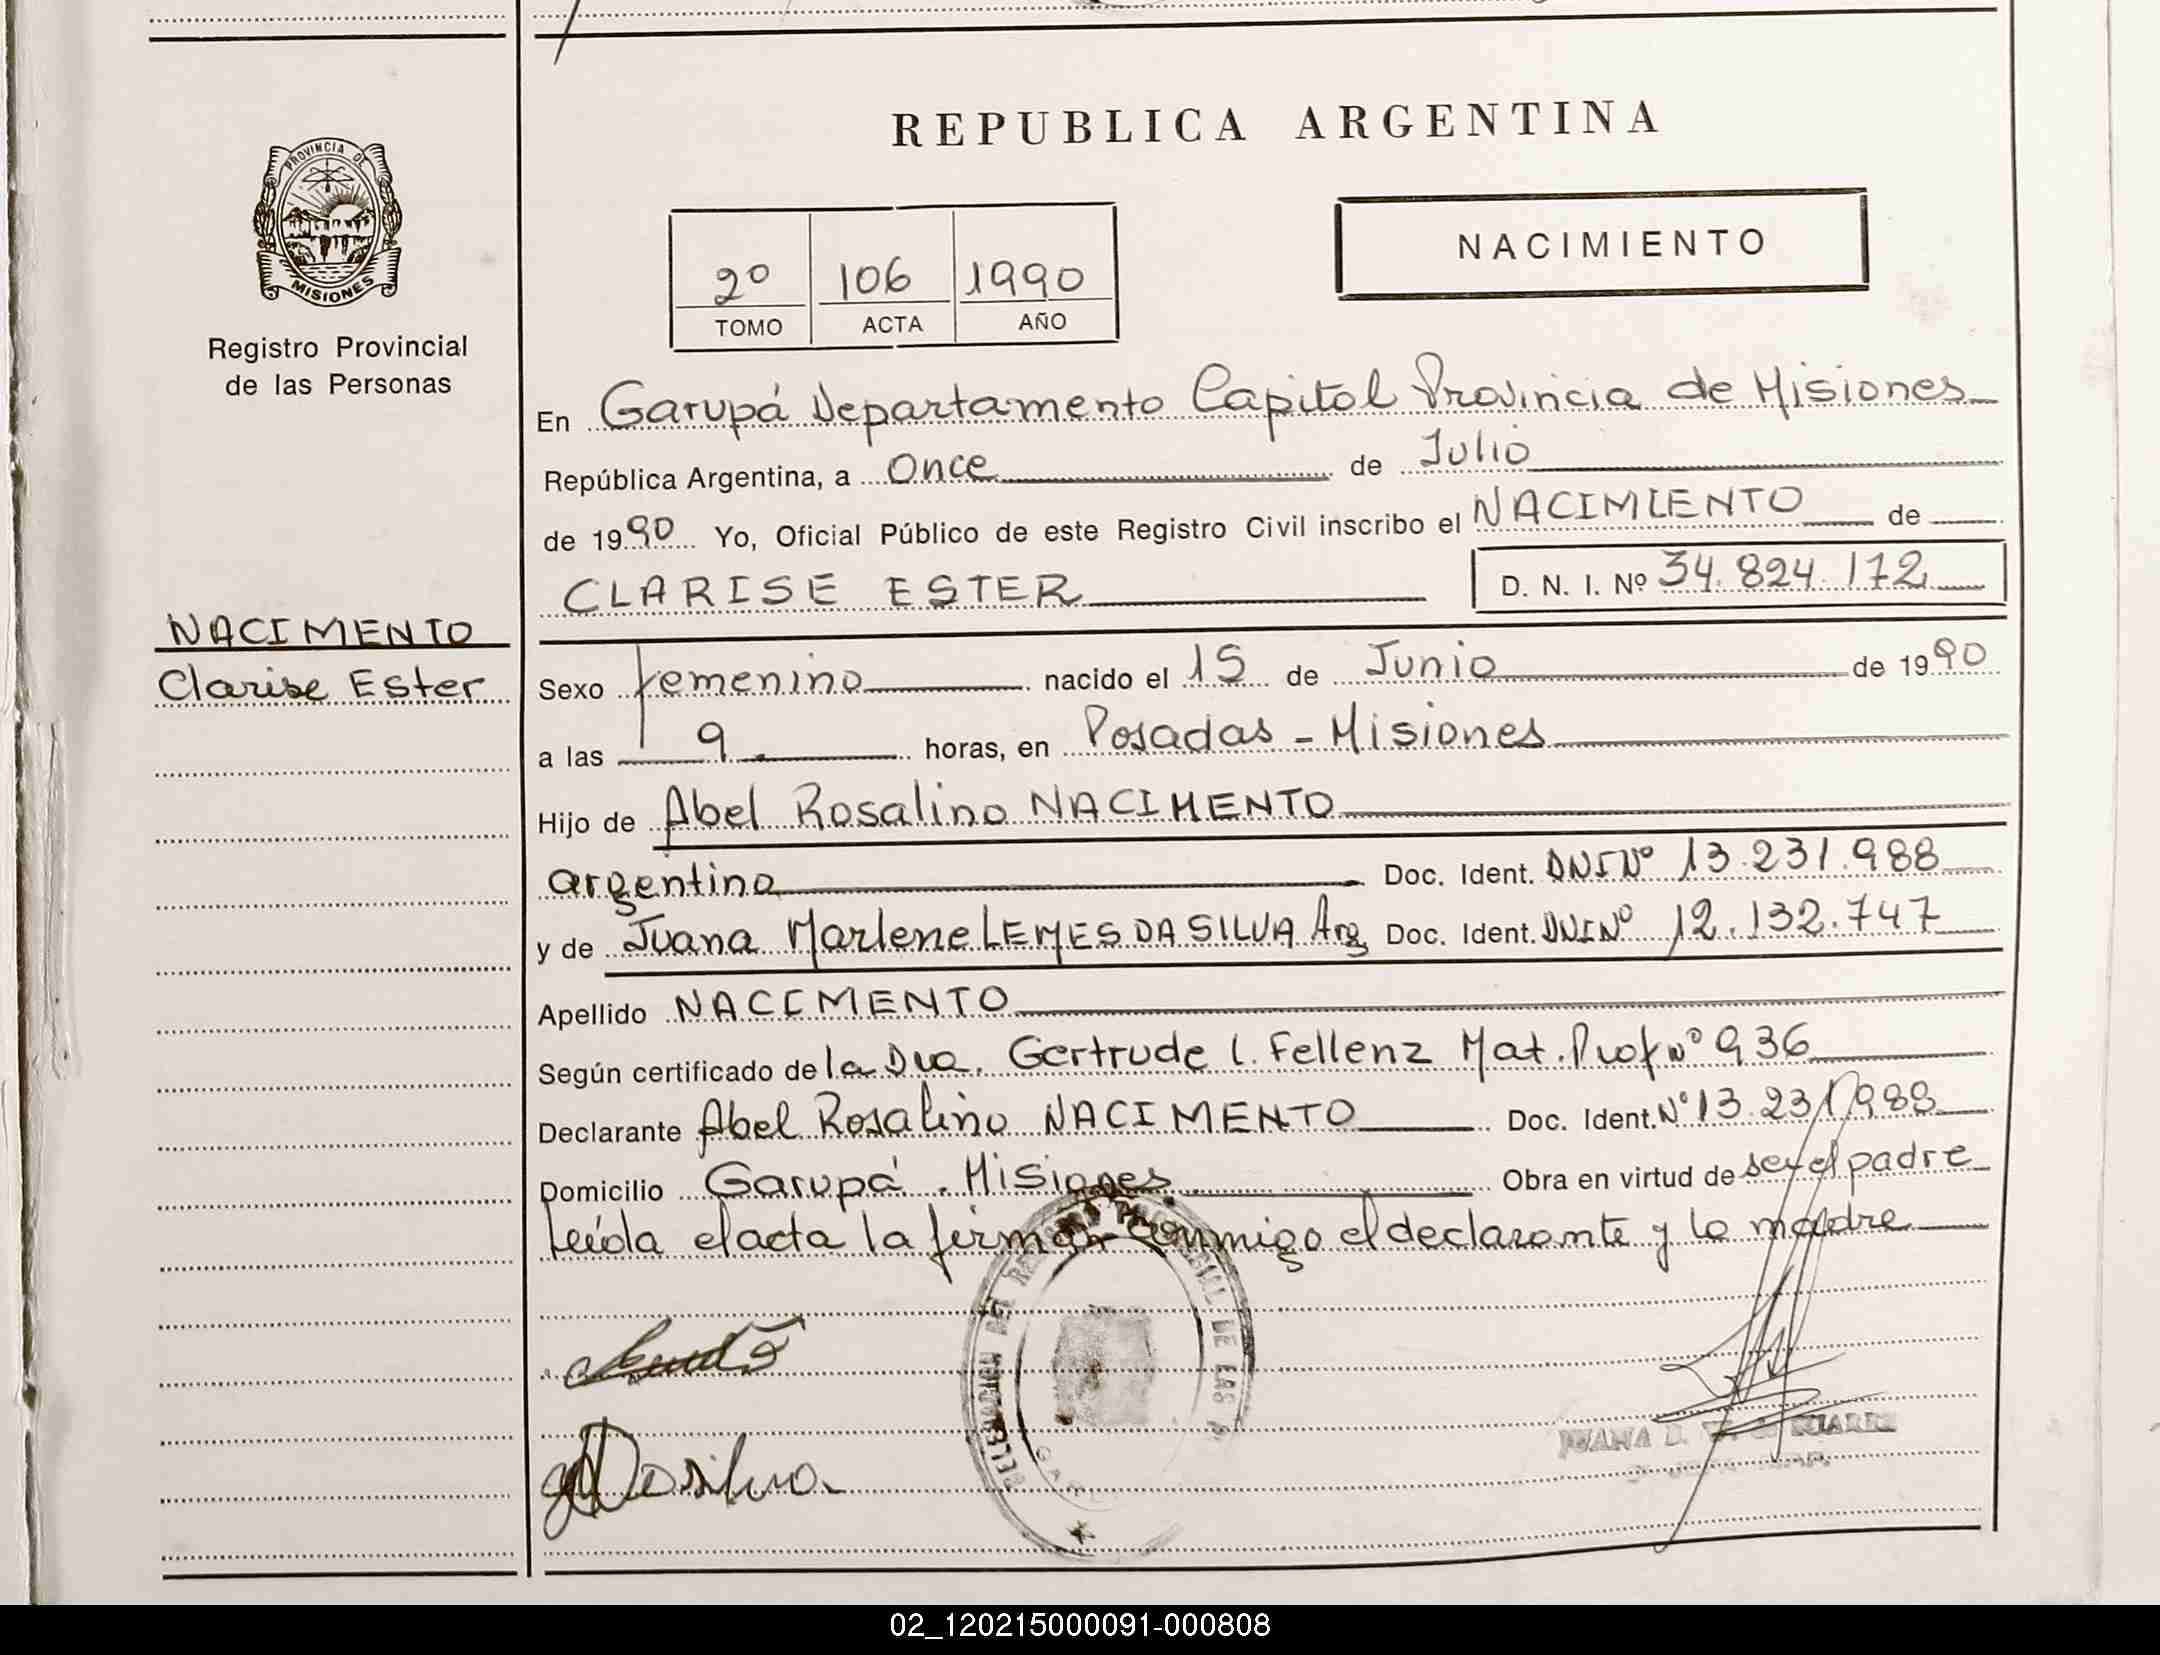 REPUBLICA ARGENTINA
PROVINCIA DE
MISIONES
Registro Provincial
de las Personas
2º 106 1990
TOMO ACTA AÑO
NACIMIENTO
En Garupá Departamento Capital Provincia de Misiones
República Argentina, a Once de Julio
de 1990 Yo, Oficial Público de este Registro Civil inscribo el NACIMIENTO de
CLARISE ESTER D. N. I. Nº 34.824.172
NACIMENTO
Clarise Ester
Sexo femenino nacido el 15 de Junio de 1990
a las 9 horas, en Posadas - Misiones
Hijo de Abel Rosalino NACIMENTO
argentino Doc. Ident. DNI Nº 13.231.988
y de Juana Marlene LEMES DA SILVA Arg Doc. Ident. DNI Nº 12.132.747
Apellido NACIMENTO
Según certificado de la Dra. Gertrude l. Fellenz Mat. Prof Nº 936
Declarante Abel Rosalino NACIMENTO Doc. Ident. Nº 13.231.988
Domicilio Garupá - Misiones Obra en virtud de ser el padre
Leída el acta la firman conmigo el declarante y la madre
DaSilva
JUANA
02_120215000091-000808